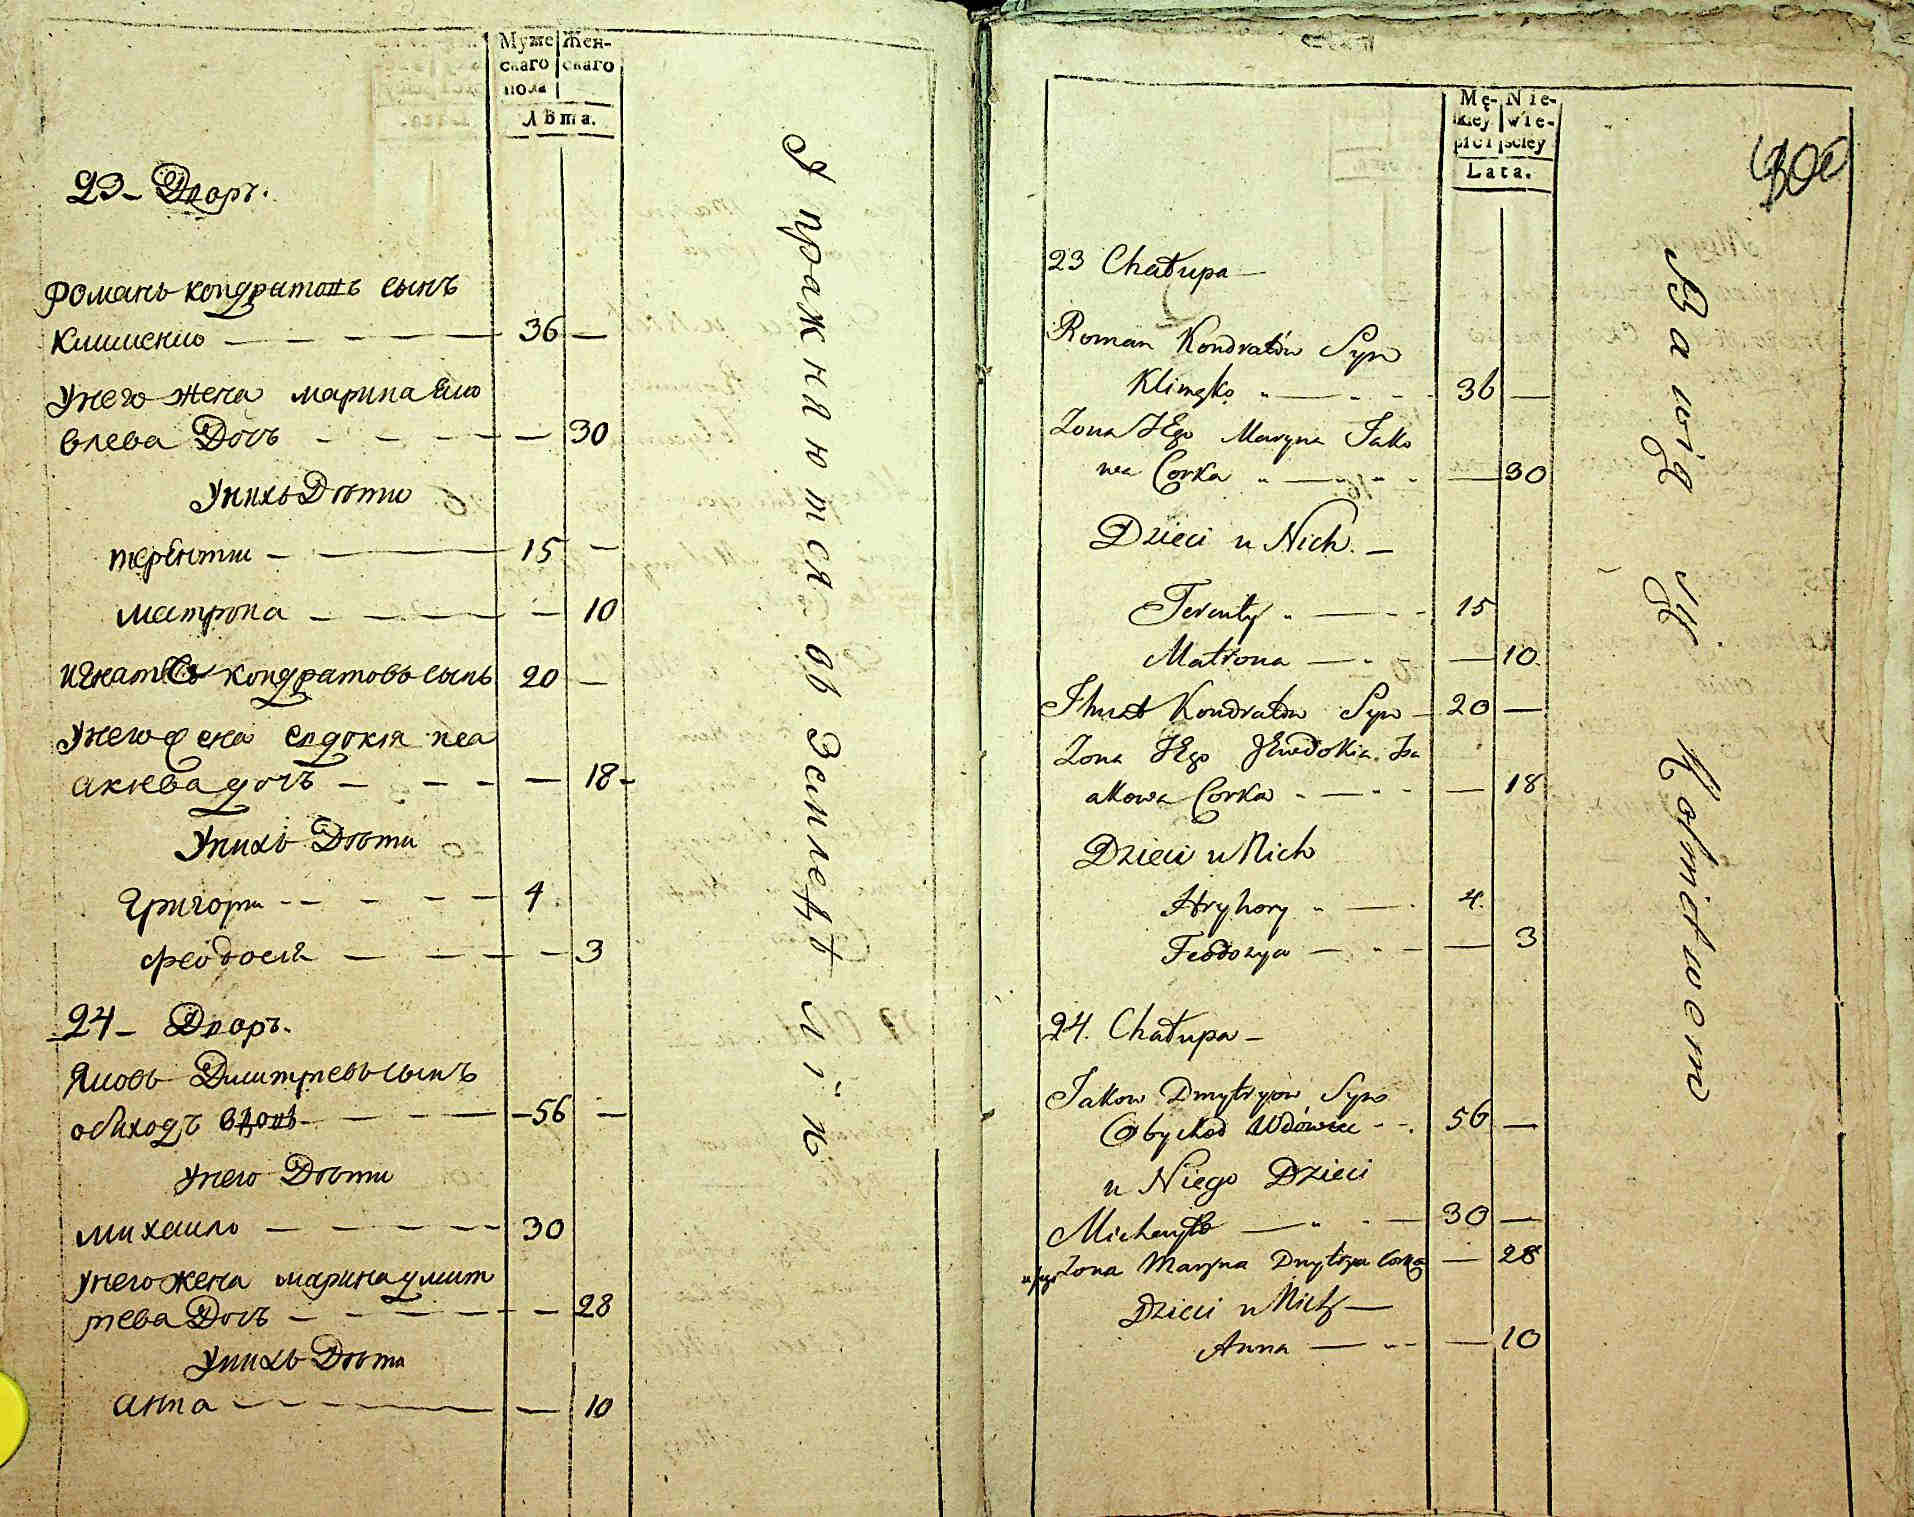 Муже Жен-
скаго скаго
пола
Лѣта.
23 - Дворъ.
Романъ кондратовъ сынъ
Клименко 36
Унего жена марина Яко
влева Дочь 30
Унихъ Дѣти
терентии 15
матрона 10
игнатъ кондратовъ сынъ 20
Унего жена евдокия иса
акиева дочъ 18
Унихъ Дѣти
Григори 4
феодосия 3
24 - Дворъ.
Яковъ Дмитриевъ сынъ
обиходъ вдовъ 56
Унего Дѣти
михаило 30
Унего жена марина дмит
риева Дочъ 28
Унихъ Дѣти
анна 10
Упражняются въ Земледѣліи
Mę- Nie-
skiey wie-
płci sciey
Lata.
400
23 Chałupa
Roman Kondratów Syn
Klimęko 36
Zona JEgo Maryna Jako
wa Corka 30
Dzieci u Nich.
Terenty 15
Matrona 10
Ihnat Kondratów Syn 20
Zona JEgo JEwdokia Isa
akowa Corka 18
Dzieci u Nich
Hryhory 4.
Feodozya 3
24. Chałupa
Jakow Dmytryów Syn
Obychod Wdowiec 56
u Niego Dzieci
Michayło 30
u jego Zona Maryna Dmytrya Corka 28
Dzieci u Nich
Anna 10
Bawią się Rolnictwem